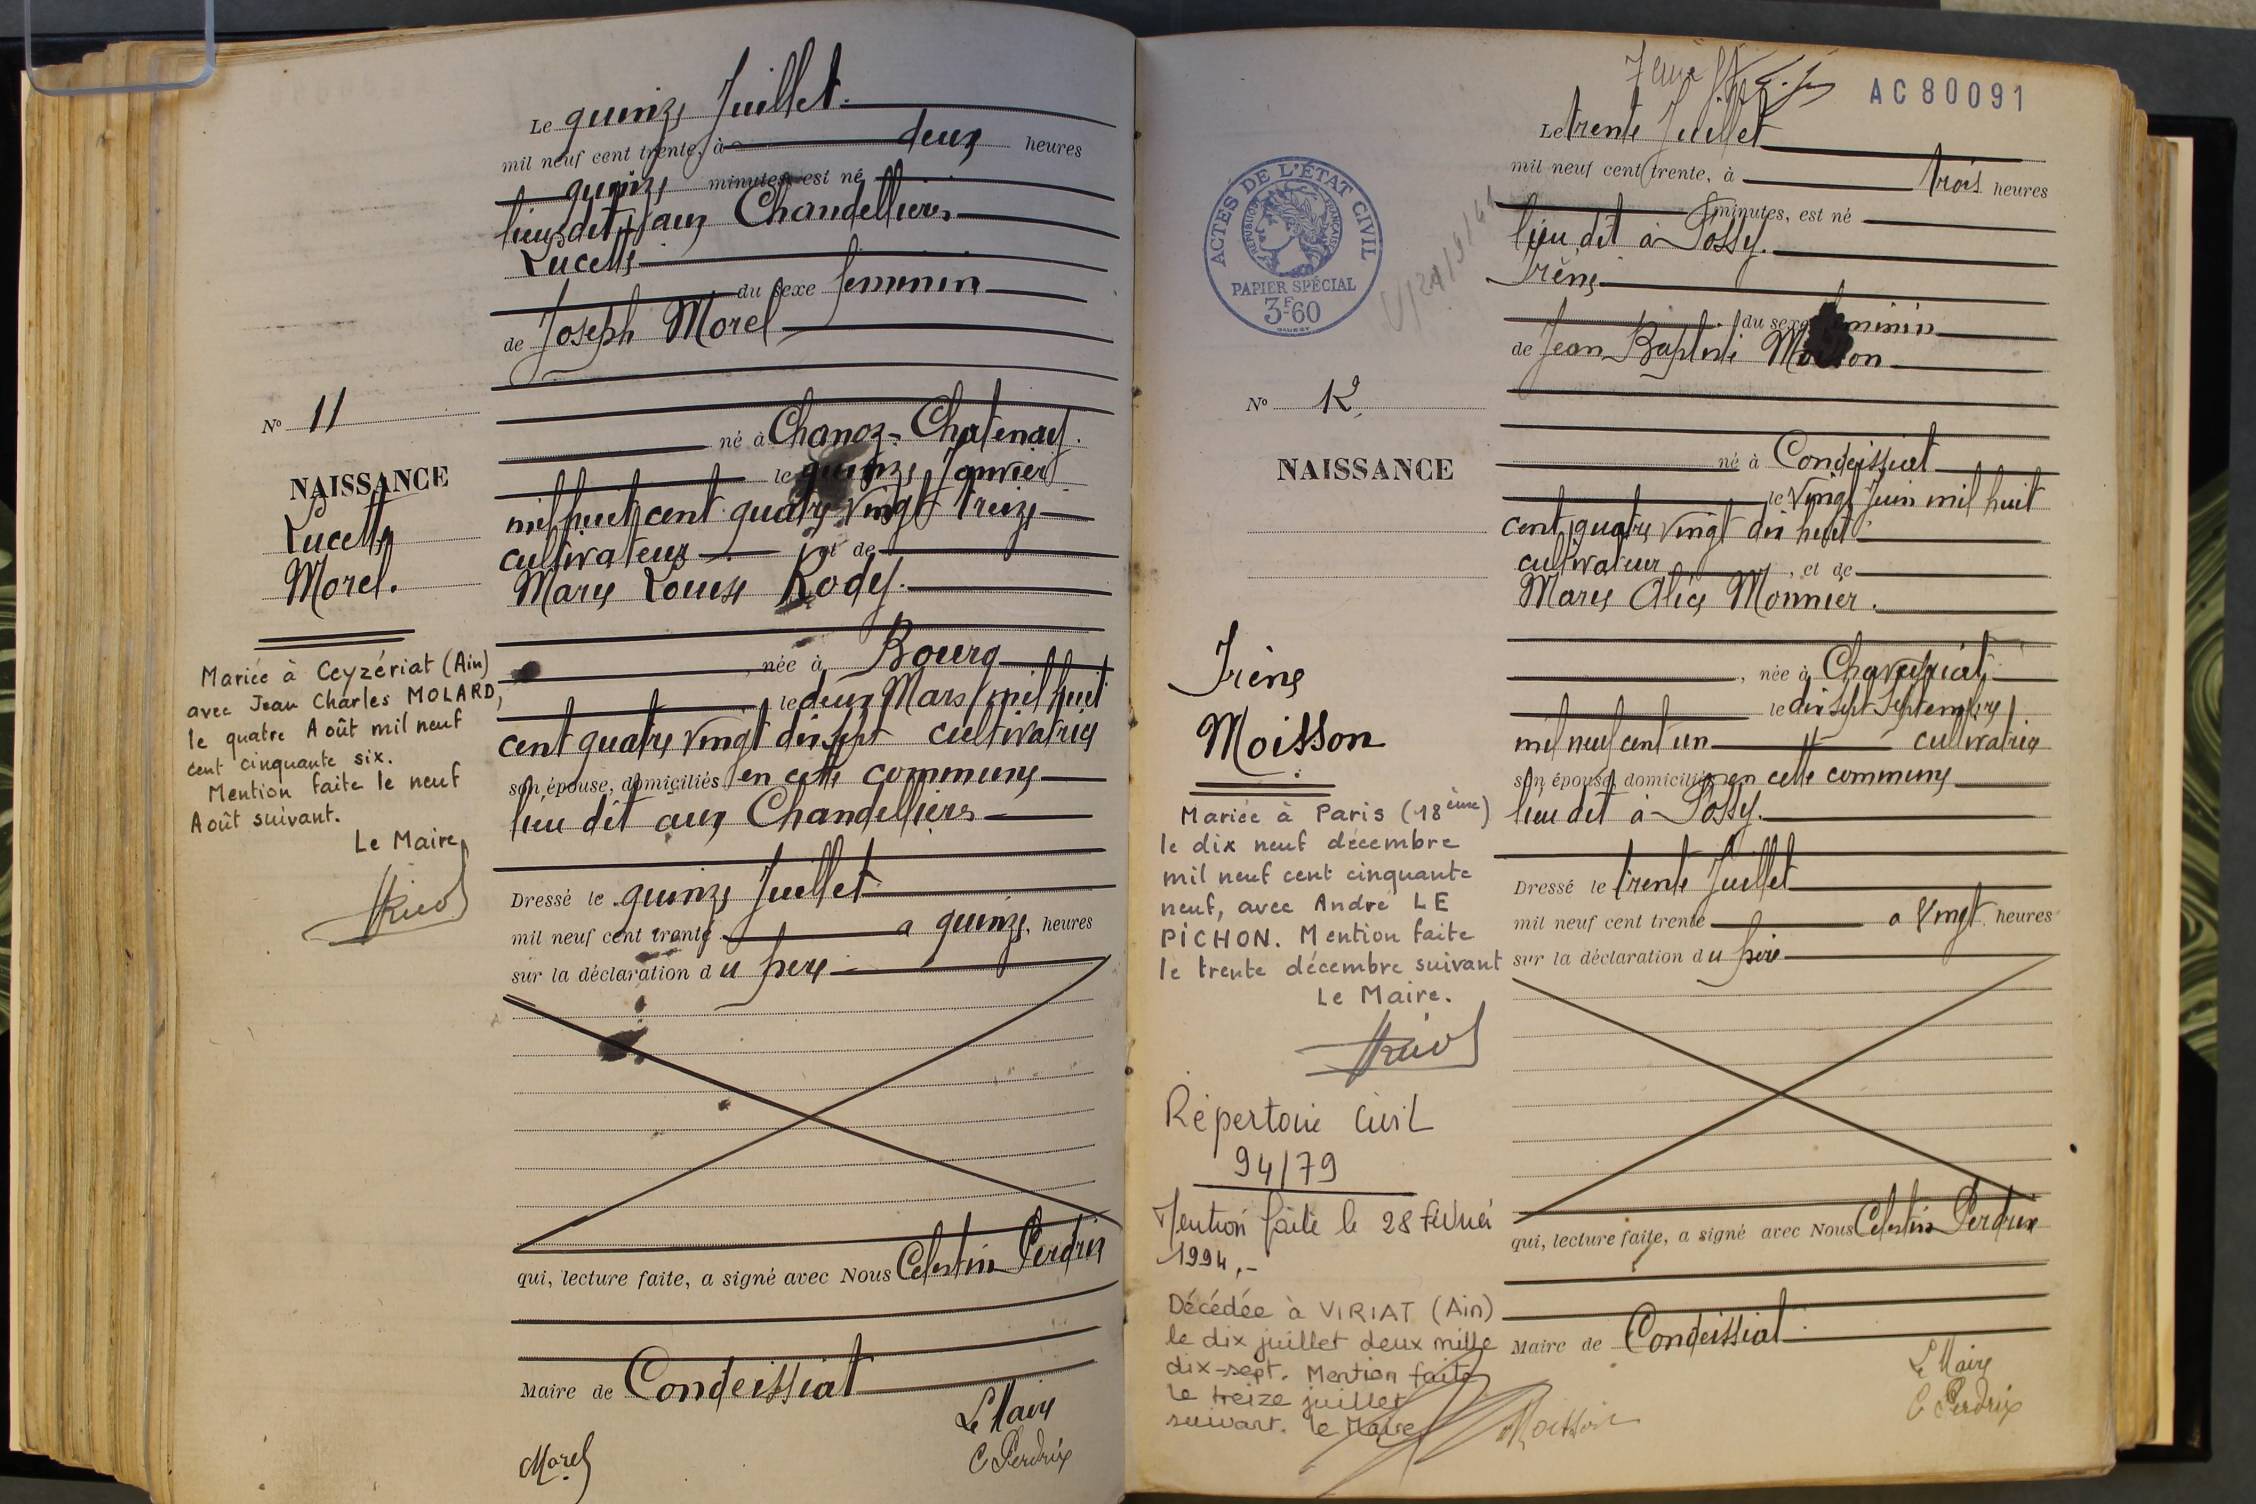 Le quinze Juillet
mil neuf cent trente, à deux heures
quinze minutes est né
lieu dit aux Chandelliers
Lucette
du sexe feminin
de Joseph Morel
né à Chanoz-Chatenay.
le quinze Janvier
mil huit cent quatre vingt treize
cultivateur et de
Marie Louise Rodet.
née à Bourg
le deux Mars mil huit
cent quatre vingt dix sept cultivatrice
son épouse, domiciliés en cette commune
lieu dit aux Chandelliers
Dressé le quinze Juillet
mil neuf cent trente a quinze heures
sur la déclaration du père
qui, lecture faite, a signé avec Nous Celestin Perdrix
Maire de Condeissiat
Le Maire
C Perdrix
Morel
No 11
NAISSANCE
Lucette
Morel.
Mariée à Ceyzériat (Ain)
avec Jean Charles MOLARD,
le quatre Août mil neuf
cent cinquante six.
Mention faite le neuf
Août suivant.
Le Maire
AC 80091
Le trente Juillet
mil neuf cent trente, à trois heures
minutes, est né
lieu dit à Possy.
Irène
du sexe feminin
de Jean Baptiste Moisson
né à Condeissiat
le vingt Juin mil huit
cent quatre vingt dix huit
cultivateur, et de
Marie Alice Monnier.
née à Chaveyriat
le dix sept Septembre
mil neuf cent un cultivatrice
son épouse, domiciliés en cette commune
lieu dit à Possy.
Dressé le trente Juillet
mil neuf cent trente a vingt heures
sur la déclaration du père
qui, lecture faite, a signé avec Nous Celestin Perdrix
Maire de Condeissiat
Le Maire
C Perdrix
Moisson
ACTES DE L'ÉTAT CIVIL
RÉPUBLIQUE FRANÇAISE
PAPIER SPÉCIAL
3F60
No 12
NAISSANCE
Irène
Moisson
Mariée à Paris (18ème)
le dix neuf décembre
mil neuf cent cinquante
neuf, avec André LE
PICHON. Mention faite
le trente décembre suivant
Le Maire.
Répertoire Civil
94/79
Mention faite le 28 février
1994,-
Décédée à VIRIAT (Ain)
le dix juillet deux mille
dix-sept. Mention faite
le treize juillet
suivant. le Maire